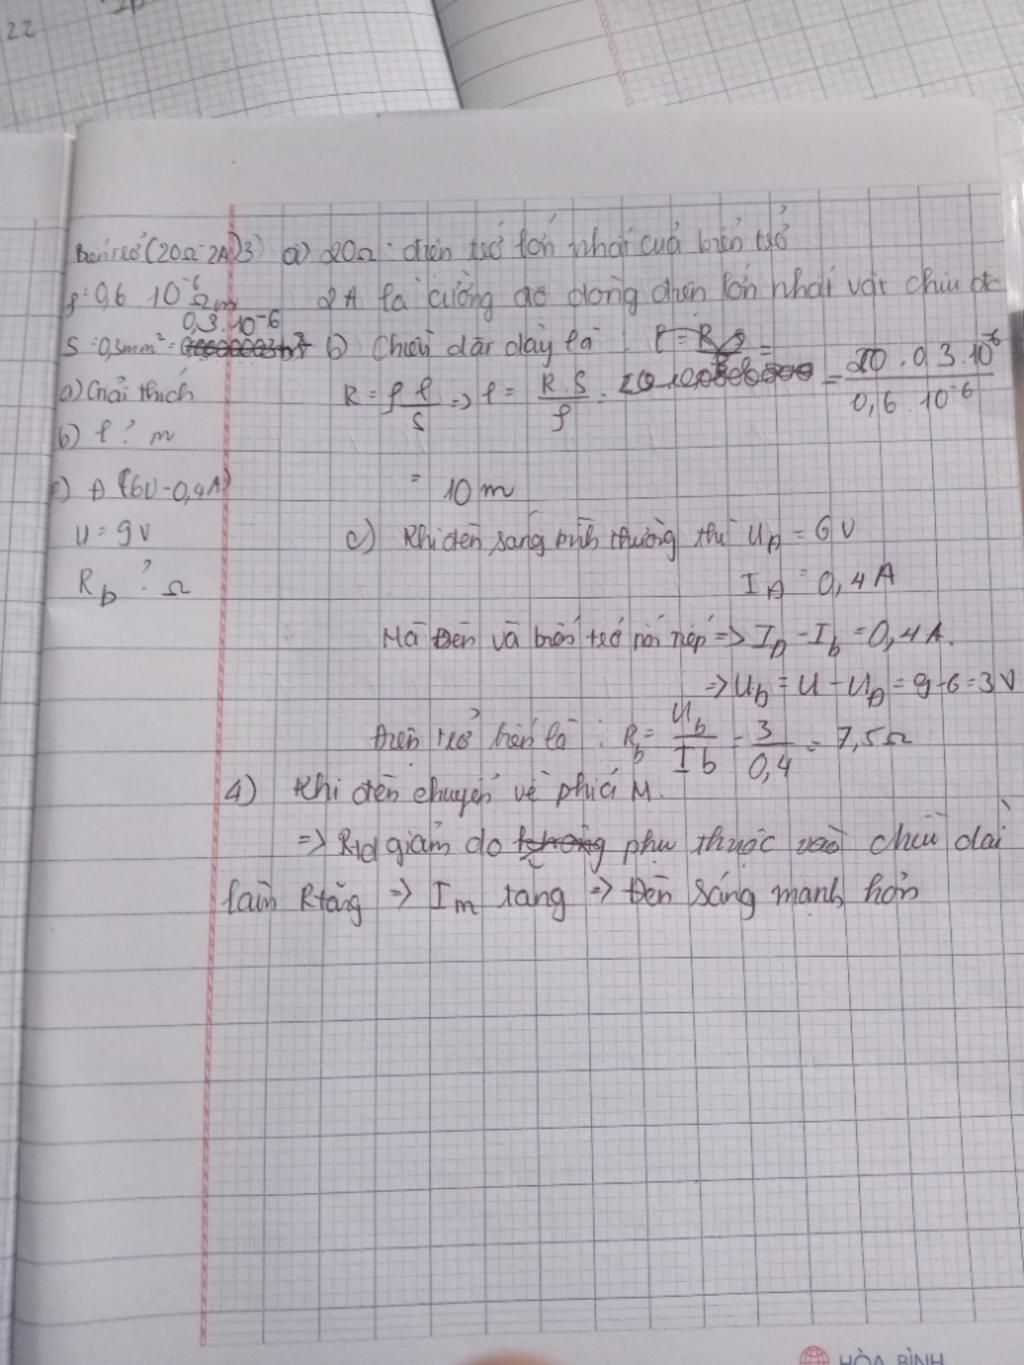 22
Biến trở (20Ω-2A) 3) a) 20Ω : điện trở lớn nhất của biến trở
ρ = 0,6 10⁻⁶ Ωm 2A là cường độ dòng điện lớn nhất vật chịu đc
0,3.10⁻⁶
S = 0,3mm² = b) Chiều dài dây là :
a) Giải thích R = ρ l/S => l = R.S/ρ = = 20.0,3.10⁻⁶/0,6.10⁻⁶
b) l ? m
c) Đ (6V-0,4A) = 10m
U = 9V c) Khi đèn sáng bình thường thì U_Đ = 6V
R_b ? Ω I_Đ = 0,4A
Mà Đèn và biến trở nối tiếp => I_Đ = I_b = 0,4A.
=> U_b = U - U_Đ = 9-6 = 3V
Điện trở biến là : R_b = U_b/I_b = 3/0,4 = 7,5Ω
4) Khi đèn chuyển về phía M.
=> Rtd giảm do phụ thuộc vào chiều dài
làm R tăng => I_m tăng => Đèn sáng mạnh hơn
HÒA BÌNH